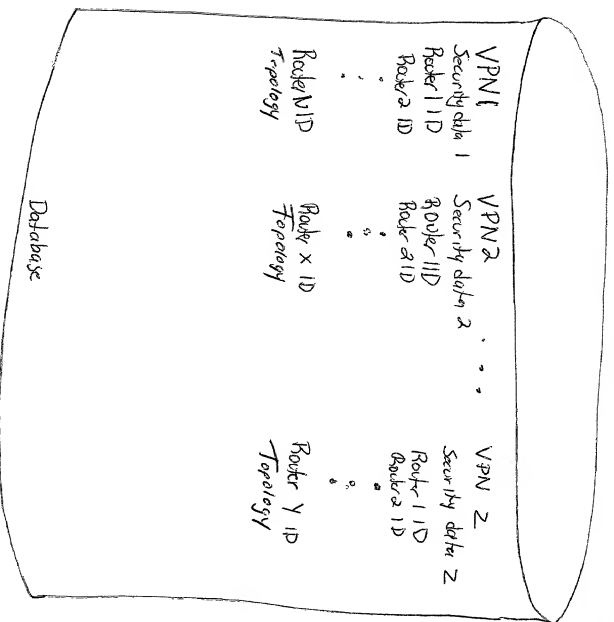 VPN1
Security data 1
Router 1 ID
Router 2 ID
Router N ID
Topology
VPN2
Security data 2
Router 1 ID
Router 2 ID
Router X ID
Topology
. . .
VPN Z
Security data Z
Router 1 ID
Router 2 ID
Router Y ID
Topology
Database